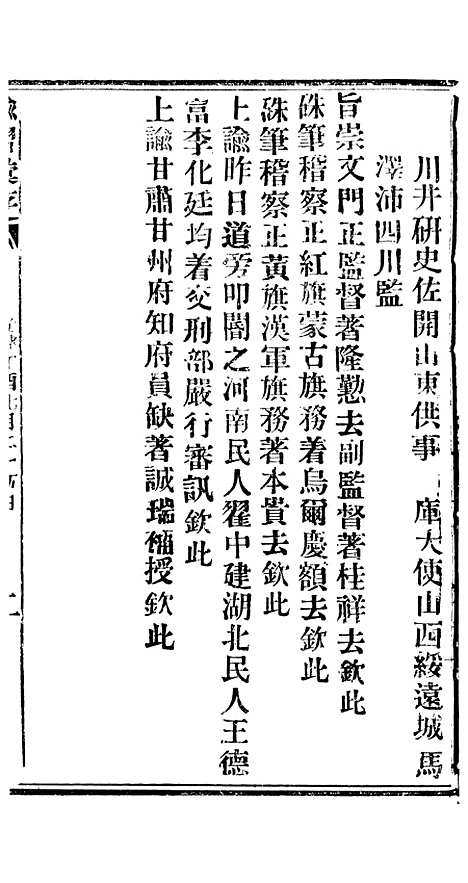 川井研史佐開山東供事　庫大使山西綏遠城馬
澤沛四川監
旨崇文門正監督著隆懃去副監督著桂祥去欽此
硃筆稽察正紅旗蒙古旗務着烏爾慶額去欽此
硃筆稽察正黃旗漢軍旗務著本貴去欽此
上諭昨日道旁叩閽之河南民人翟中建湖北民人王德
富李化廷均着交刑部嚴行審訊欽此
上諭甘肅甘州府知府員缺著誠瑞補授欽此
諭摺彙存